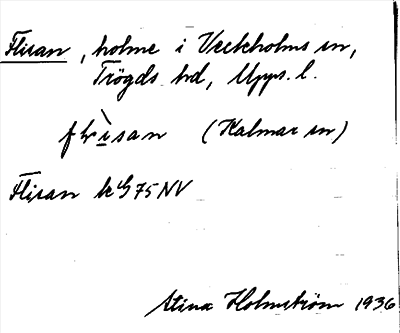 Flisan, holme i Veckholms sn,
Trögds hd, Upps. l.
flìsan (Kalmar sn)
Flisan k G75NV
Stina Holmström 1936